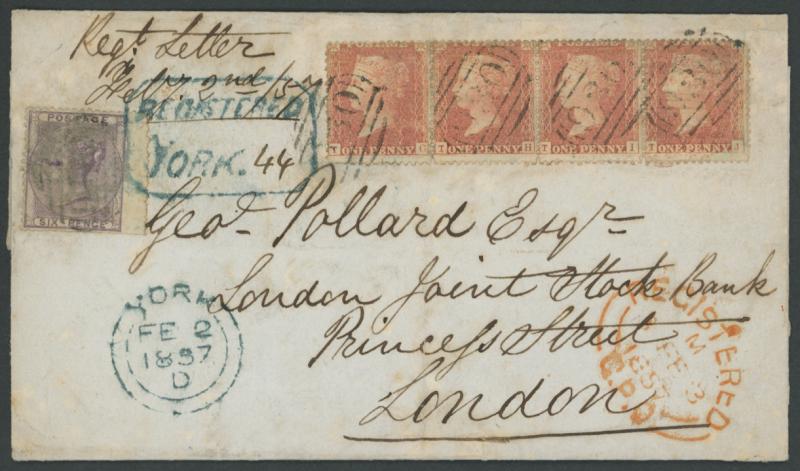 Regd. Letter
Feby. 2nd/57
REGISTERED
YORK. 44
POSTAGE
SIX PENCE
T ONE PENNY G
T ONE PENNY H
T ONE PENNY I
T ONE PENNY J
Geo. Pollard Esqr
London Joint Stock Bank
Princess Street
London
YORK
FE 2
1857
D
REGISTERED
M
FE 3
1857
G.P.O